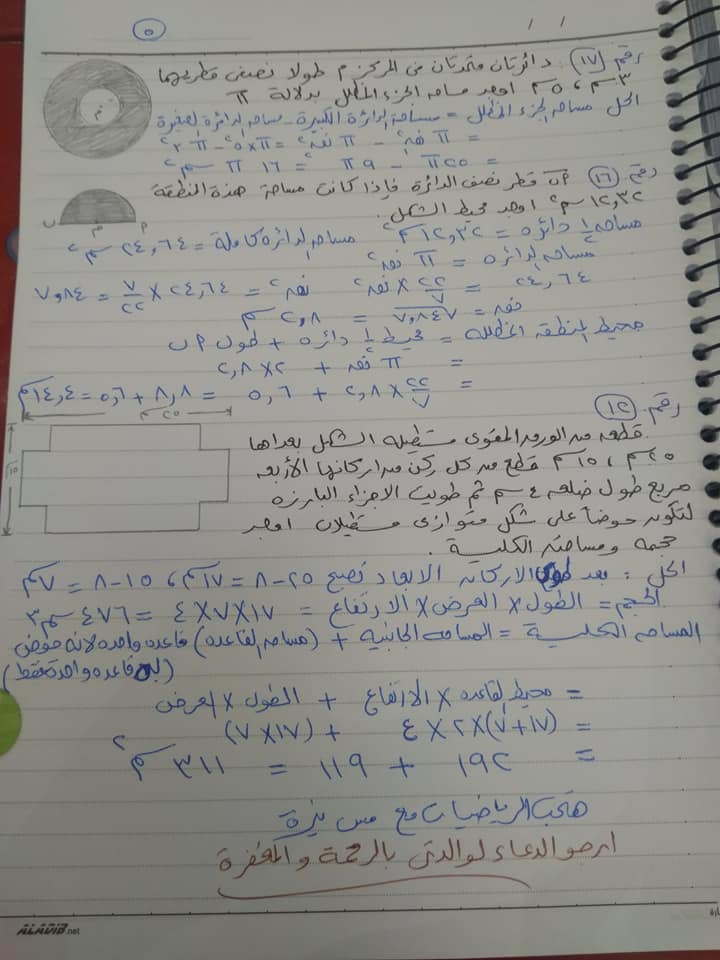 ٥
/ /
رقم (١٧) : دائرتان متحدتان فى المركز م طولا نصفى قطريهما
٣سم ، ٥سم اوجد مساحه الجزء المظلل بدلالة π
الحل مساحه الجزء المظلل = مساحة الدائرة الكبيرة - مساحه الدائرة الصغيرة
= π نق٢ - π نق٢ = π × ٥٢ - π ٣٢
= ٢٥π - ٩π = ١٦ π سم٢
م
رقم (١٦) أب قطر نصف الدائرة فإذا كانت مساحة هذة المنطقة
١٢,٣٢ سم٢ اوجد محيط الشكل .
ب م أ
مساحه ١/٢ دائره = ١٢,٣٢ سم٢ مساحه الدائره كاملة = ٢٤,٦٤ سم٢
مساحه الدائره = π نق٢
٢٤,٦٤ = ٢٢/٧ × نق٢ نق٢ = ٢٤,٦٤ × ٧/٢٢ = ٧,٨٤
نق = √٧,٨٤ = ٢,٨ سم
محيط المنطقه المظلله = محيط ١/٢ دائره + طول أب
= π نق + ٢ × ٢,٨
= ٢٢/٧ × ٢,٨ + ٥,٦ = ٨,٨ + ٥,٦ = ١٤,٤سم
رقم (١٢)
٢٥ سم
١٥سم
قطعه من الورق المقوى مستطيله الشكل بعداها
٢٥سم ، ١٥سم قطع من كل ركن من اركانها الأربعه
مربع طول ضلعه ٤ سم ثم طويت الاجزاء البارزه
لتكون حوضاً على شكل متوازى مستطيلات اوجد
حجمه ومساحته الكلية .
الحل : بعد الاركان الابعاد تصبح ٢٥ - ٨ = ١٧سم ، ١٥ - ٨ = ٧سم
الحجم = الطول × العرض × الارتفاع = ١٧ × ٧ × ٤ = ٤٧٦ سم٣
المساحه الكلية = المساحه الجانبيه + (مساحه القاعده) قاعده واحده لانه حوض
(له قاعده واحدة فقط)
= محيط القاعده × الارتفاع + الطول × العرض
= (١٧+٧) × ٢ × ٤ + (١٧ × ٧)
= ١٩٢ + ١١٩ = ٣١١ سم٢
هتحب الرياضيات مع مس نيرة
ارجو الدعاء لوالدتى بالرحمة والمغفرة
ALADIB.net